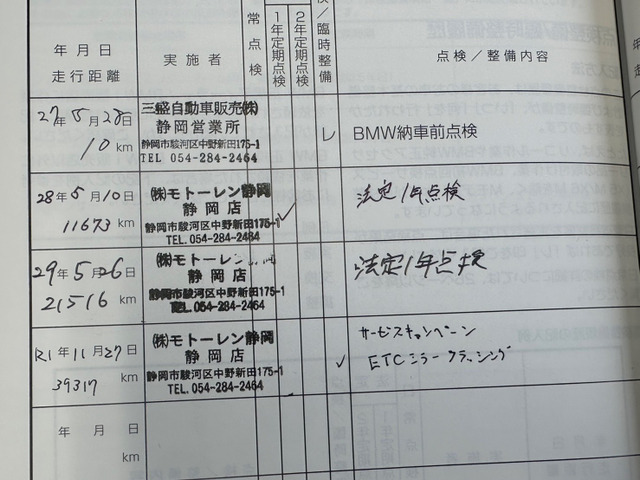 年月日
走行距離
実施者
常点検
1年定期点検
2年定期点検
／臨時整備
点検／整備内容
27年5月28日
10km
三盛自動車販売(株)
静岡営業所
静岡市駿河区中野新田175-1
TEL 054-284-2464
レ
BMW納車前点検
28年5月10日
11673 km
(株)モトーレン静岡
静岡店
静岡市駿河区中野新田175-1
TEL.054-284-2464
✓
法定1年点検
29年5月26日
21516 km
(株)モトーレン
静岡店
静岡市駿河区中野新田175-1
TEL.054-284-2464
法定1年点検
R1年11月27日
39317 km
(株)モトーレン静岡
静岡店
静岡市駿河区中野新田175-1
TEL.054-284-2464
✓
サービスキャンペーン
ETCミラークラッシング
年月日
km